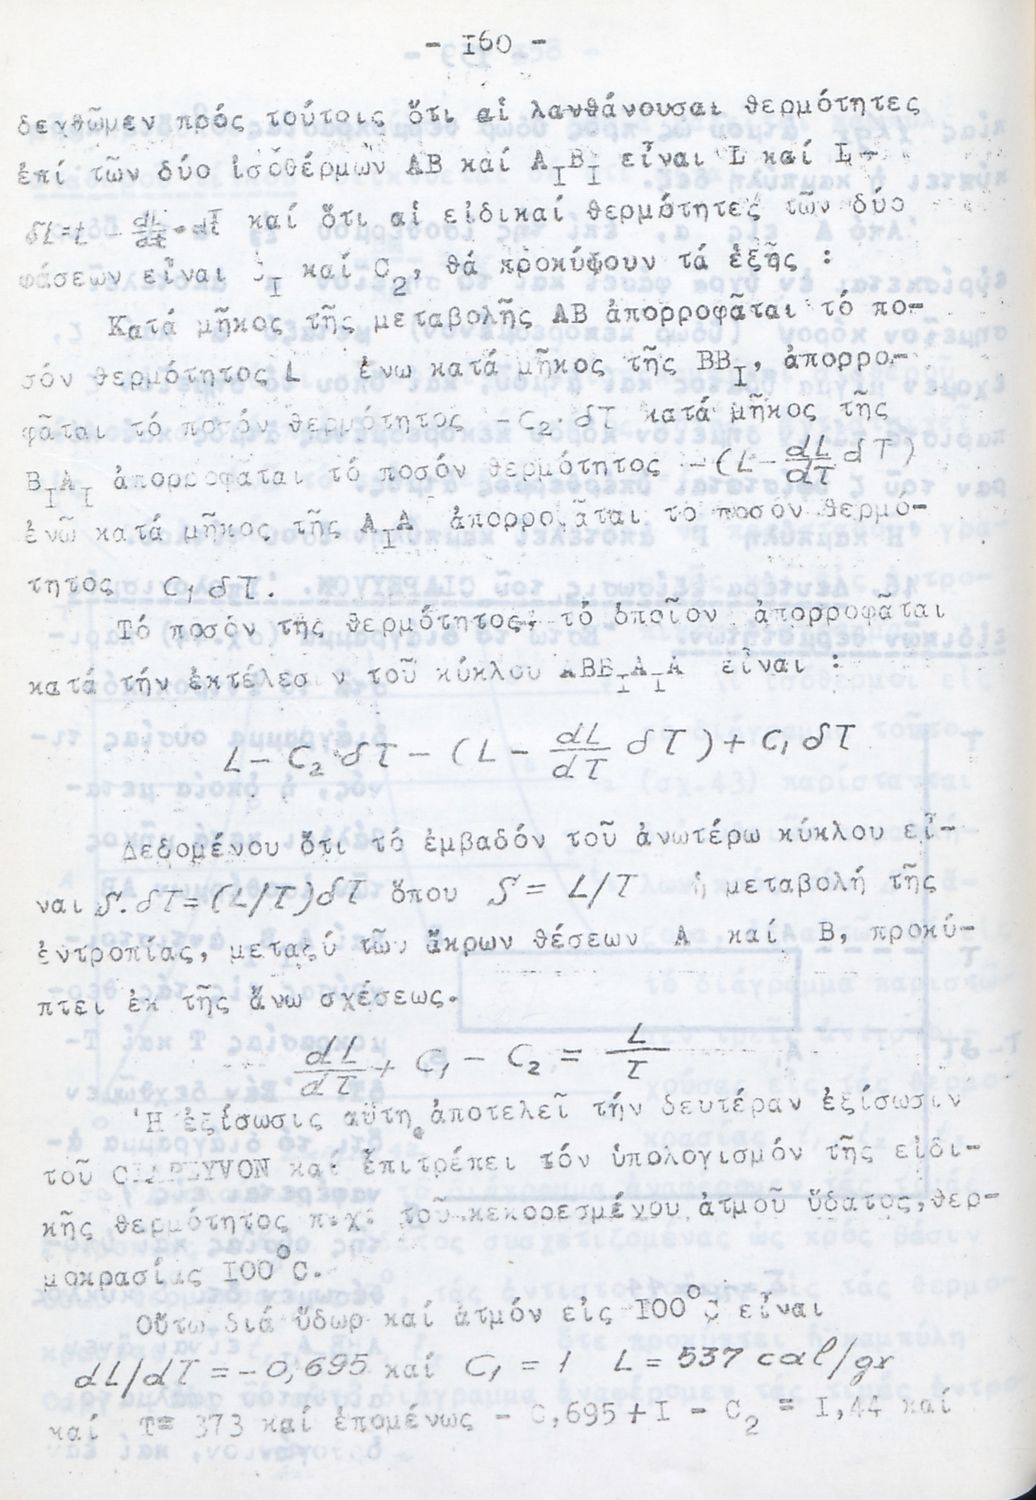 - I60 -
δεχθῶμεν πρός τούτοις ὅτι αἱ λανθάνουσαι θερμότητες
ἐπί τῶν δύο ἰσοθέρμων AB καί A_I B_I εἶναι L καί L -
δL=L - dL/dt · dT καί ὅτι αἱ εἰδικαί θερμότητες τῶν δύο
φάσεων εἶναι C_I καί C_2, θά προκύψουν τά ἑξῆς :
Κατά μῆκος τῆς μεταβολῆς AB ἀπορροφᾶται τό πο-
σόν θερμότητος L ἐνω κατά μῆκος τῆς BB_I, ἀπορρο-
φᾶται τό ποσόν θερμότητος - C₂· δT κατά μῆκος τῆς
B_I A_I ἀπορροφᾶται τό ποσόν θερμότητος - (L - dL/dT δT)
ἐνῶ κατά μῆκος τῆς A_I A ἀπορροφᾶται το ποσόν θερμό-
τητος C₁ δT.
Τό ποσόν τῆς θερμότητος, τό ὁποῖον ἀπορροφᾶται
κατά τήν ἐκτέλεσιν τοῦ κύκλου ABB_I A_I A εἶναι :
L - C₂·δT - (L - dL/dT δT) + C₁ δT
Δεδομένου ὅτι τό ἐμβαδόν τοῦ ἀνωτέρω κύκλου εἶ-
ναι S.δT=(L/T)δT ὅπου S = L/T ἡ μεταβολή τῆς
ἐντροπίας, μεταξύ τῶν ἄκρων θέσεων A καί B, προκύ-
πτει ἐκ τῆς ἄνω σχέσεως.
dL/dT + C₁ - C₂ = L/T
Ἡ ἐξίσωσις αὕτη ἀποτελεῖ τήν δευτέραν ἐξίσωσιν
τοῦ CIAPEYVON καί ἐπιτρέπει τόν ὑπολογισμόν τῆς εἰδι-
κῆς θερμότητος π.χ. τοῦ κεκορεσμένου ἀτμοῦ ὕδατος, θερ-
μοκρασίας I00°C.
Οὕτω διά ὕδωρ καί ἀτμόν εἰς I00°C εἶναι
dL/dT = - 0,695 καί C₁ = 1 L = 537 cal/gr
καί T= 373 καί ἑπομένως - 0,695 + I - C_2 = I,44 καί